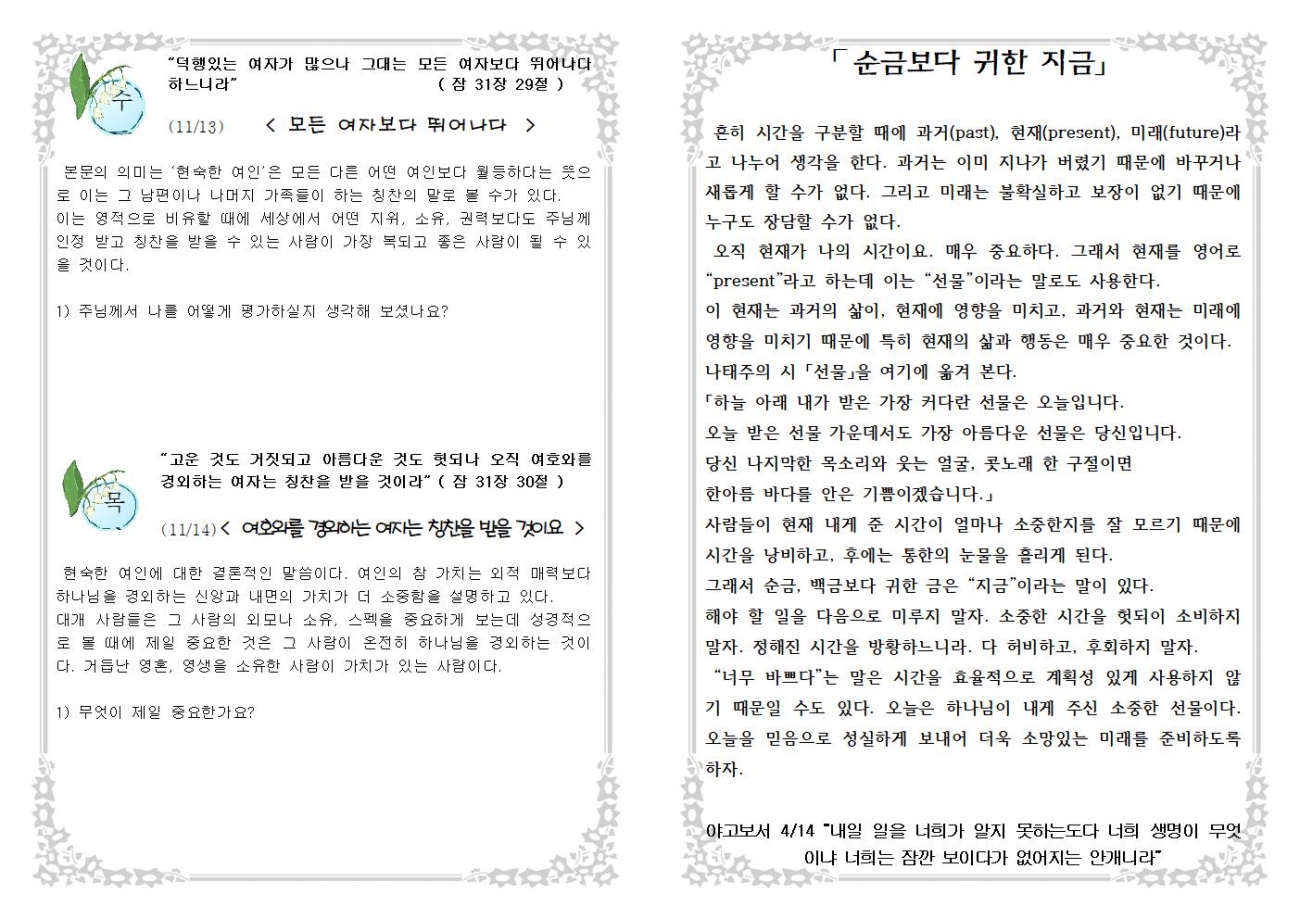 “덕행있는 여자가 많으나 그대는 모든 여자보다 뛰어나다
하느니라” ( 잠 31장 29절 )
수
(11/13) < 모든 여자보다 뛰어나다 >
본문의 의미는 ‘현숙한 여인’은 모든 다른 어떤 여인보다 월등하다는 뜻으
로 이는 그 남편이나 나머지 가족들이 하는 칭찬의 말로 볼 수가 있다.
이는 영적으로 비유할 때에 세상에서 어떤 지위, 소유, 권력보다도 주님께
인정 받고 칭찬을 받을 수 있는 사람이 가장 복되고 좋은 사람이 될 수 있
을 것이다.
1) 주님께서 나를 어떻게 평가하실지 생각해 보셨나요?
“고운 것도 거짓되고 아름다운 것도 헛되나 오직 여호와를
경외하는 여자는 칭찬을 받을 것이라” ( 잠 31장 30절 )
목
(11/14) < 여호와를 경외하는 여자는 칭찬을 받을 것이요 >
현숙한 여인에 대한 결론적인 말씀이다. 여인의 참 가치는 외적 매력보다
하나님을 경외하는 신앙과 내면의 가치가 더 소중함을 설명하고 있다.
대개 사람들은 그 사람의 외모나 소유, 스펙을 중요하게 보는데 성경적으
로 볼 때에 제일 중요한 것은 그 사람이 온전히 하나님을 경외하는 것이
다. 거듭난 영혼, 영생을 소유한 사람이 가치가 있는 사람이다.
1) 무엇이 제일 중요한가요?
「순금보다 귀한 지금」
흔히 시간을 구분할 때에 과거(past), 현재(present), 미래(future)라
고 나누어 생각을 한다. 과거는 이미 지나가 버렸기 때문에 바꾸거나
새롭게 할 수가 없다. 그리고 미래는 불확실하고 보장이 없기 때문에
누구도 장담할 수가 없다.
오직 현재가 나의 시간이요. 매우 중요하다. 그래서 현재를 영어로
“present”라고 하는데 이는 “선물”이라는 말로도 사용한다.
이 현재는 과거의 삶이, 현재에 영향을 미치고, 과거와 현재는 미래에
영향을 미치기 때문에 특히 현재의 삶과 행동은 매우 중요한 것이다.
나태주의 시 「선물」을 여기에 옮겨 본다.
「하늘 아래 내가 받은 가장 커다란 선물은 오늘입니다.
오늘 받은 선물 가운데서도 가장 아름다운 선물은 당신입니다.
당신 나지막한 목소리와 웃는 얼굴, 콧노래 한 구절이면
한아름 바다를 안은 기쁨이겠습니다.」
사람들이 현재 내게 준 시간이 얼마나 소중한지를 잘 모르기 때문에
시간을 낭비하고, 후에는 통한의 눈물을 흘리게 된다.
그래서 순금, 백금보다 귀한 금은 “지금”이라는 말이 있다.
해야 할 일을 다음으로 미루지 말자. 소중한 시간을 헛되이 소비하지
말자. 정해진 시간을 방황하느니라. 다 허비하고, 후회하지 말자.
“너무 바쁘다”는 말은 시간을 효율적으로 계획성 있게 사용하지 않
기 때문일 수도 있다. 오늘은 하나님이 내게 주신 소중한 선물이다.
오늘을 믿음으로 성실하게 보내어 더욱 소망있는 미래를 준비하도록
하자.
야고보서 4/14 “내일 일을 너희가 알지 못하는도다 너희 생명이 무엇
이냐 너희는 잠깐 보이다가 없어지는 안개니라”